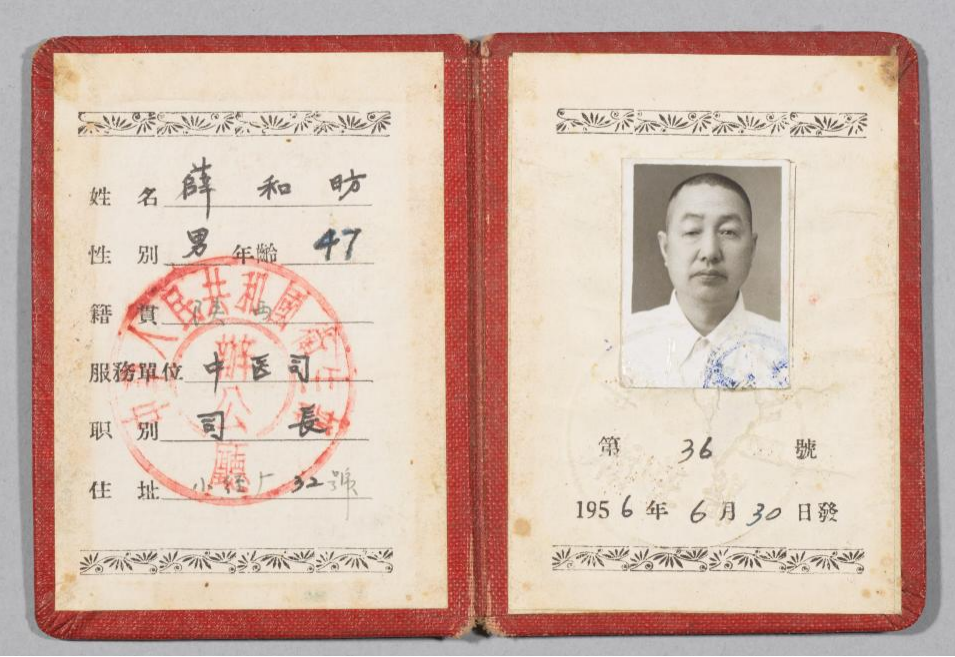 姓名 薛和昉
性別 男 年齡 47
籍貫 陕西
服務單位 中医司
职別 司長
住址 小经厂 32號
人民共和國
辦公廳
第 36 號
1956年 6月 30日發